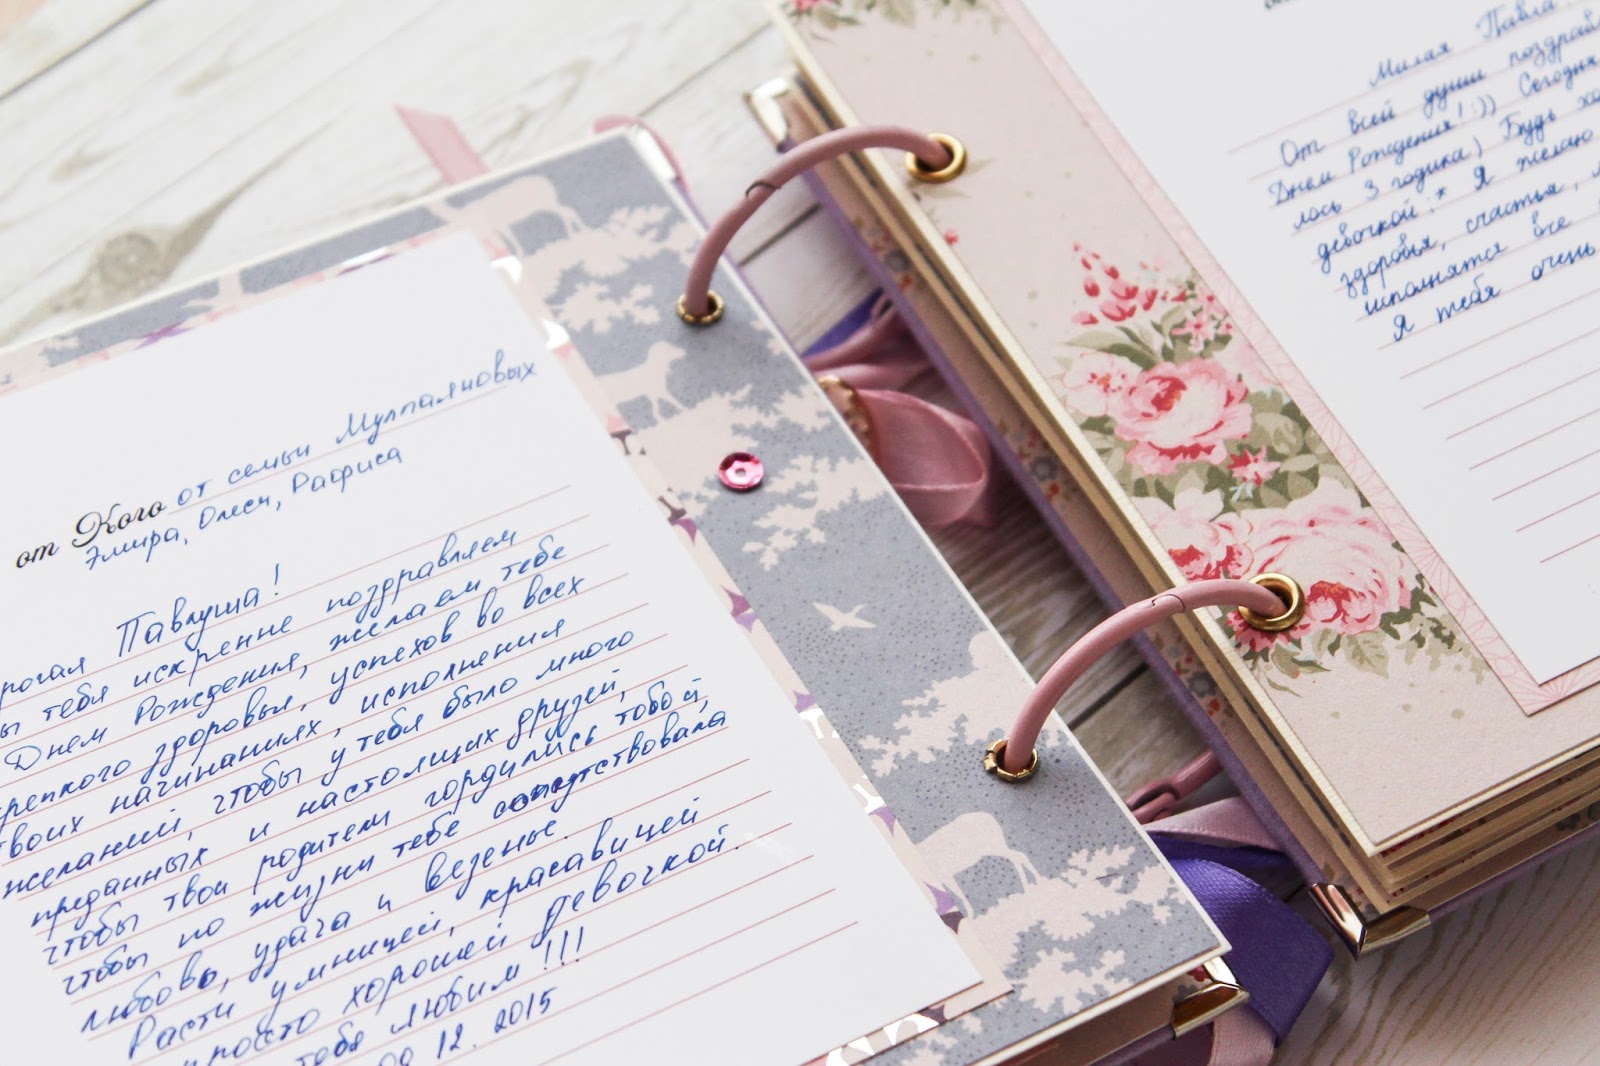 от Кого от семьи Мулпаляновых
Элира, Олеся, Раориса
рогая Павлуша!
ы тебя искренне поздравляем
Днем Рождения, желаем тебе
крепкого здоровья, успехов во всех
твоих начинаниях, исполнения
желаний, чтобы у тебя было много
преданных и настоящих друзей,
чтобы твои родители гордились тобой,
чтобы по жизни тебе сопутствовала
любовь, удача и везенье.
Расти умницей, красавицей
просто хорошей девочкой.
тебя любим!!!
12. 2015
Милая Павла
От всей души поздрав
Днем Рождения!:)) Сегодня
лось 3 годика) Будь хо
девочкой:* Я желаю
здоровья, счастья,
исполнятся все
Я тебя очень